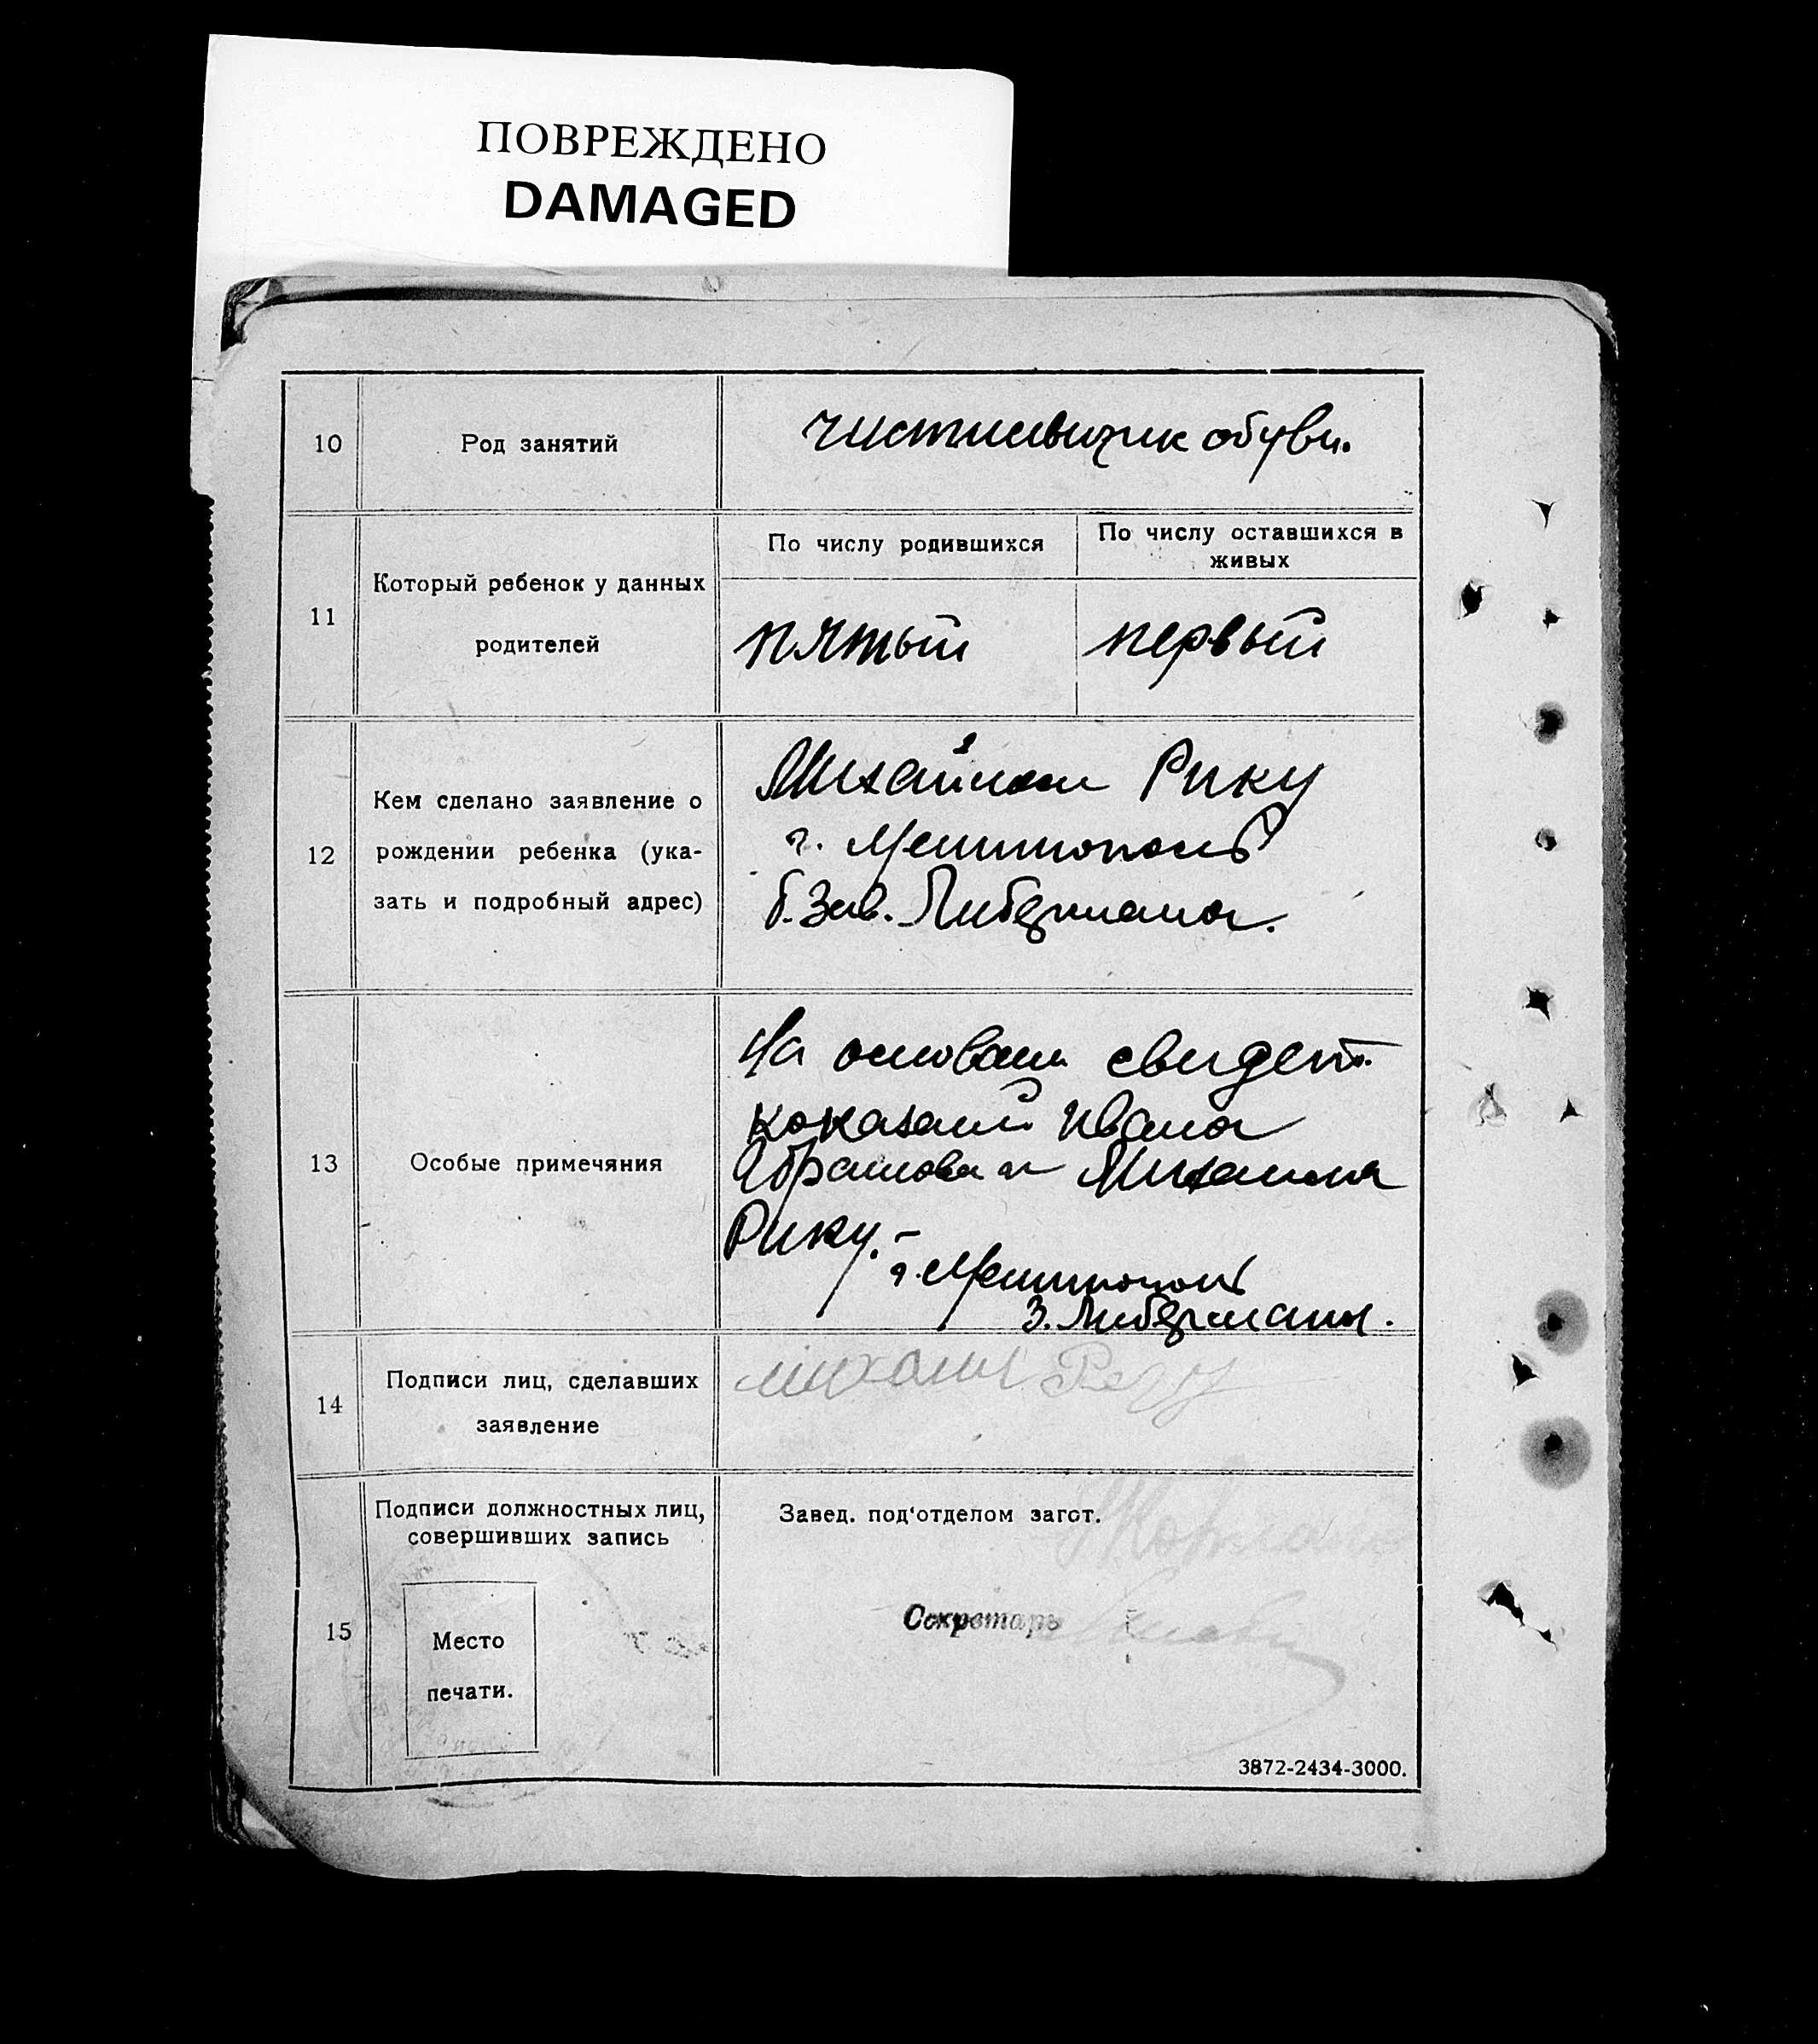 ПОВРЕЖДЕНО
DAMAGED
10
Род занятий
чистильщик обуви.
11
Который ребенок у данных
родителей
По числу родившихся
По числу оставшихся в
живых
пятый
первый
12
Кем сделано заявление о
рождении ребенка (ука-
зать и подробный адрес)
Михаилом Рику
г. Мелитополь
б. Зав. Либермана.
13
Особые примечяния
На основани свидет.
показаний Ивана
Абрамова и Михаила
Рику. -
г. Мелитополь
З. Либермана.
14
Подписи лиц, сделавших
заявление
Михаил
15
Подписи должностных лиц,
совершивших запись
Место
печати.
Завед. под‘отделом загст.
Секретарь
3872-2434-3000.